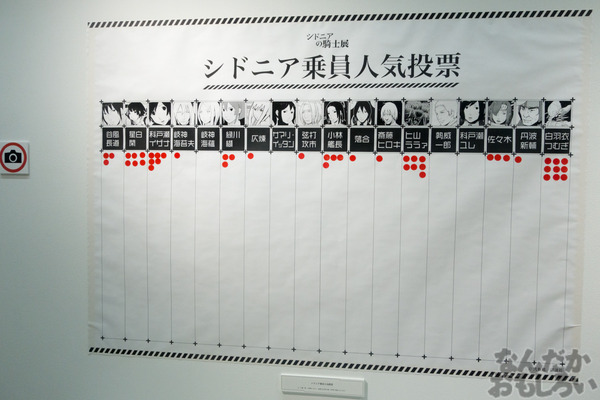 シドニア
の騎士展
シドニア乗員人気投票
谷風
長道
星白
閑
科戸瀬
イザナ
岐神
海苔夫
岐神
海蘊
緑川
纈
仄煉
サマリ・
イッタン
弦打
攻市
小林
艦長
落合
斎藤
ヒロキ
ヒ山
ララァ
勢威
一郎
科戸瀬
ユレ
佐々木
丹波
新輔
白羽衣
つむぎ
なんだか
おもしろい